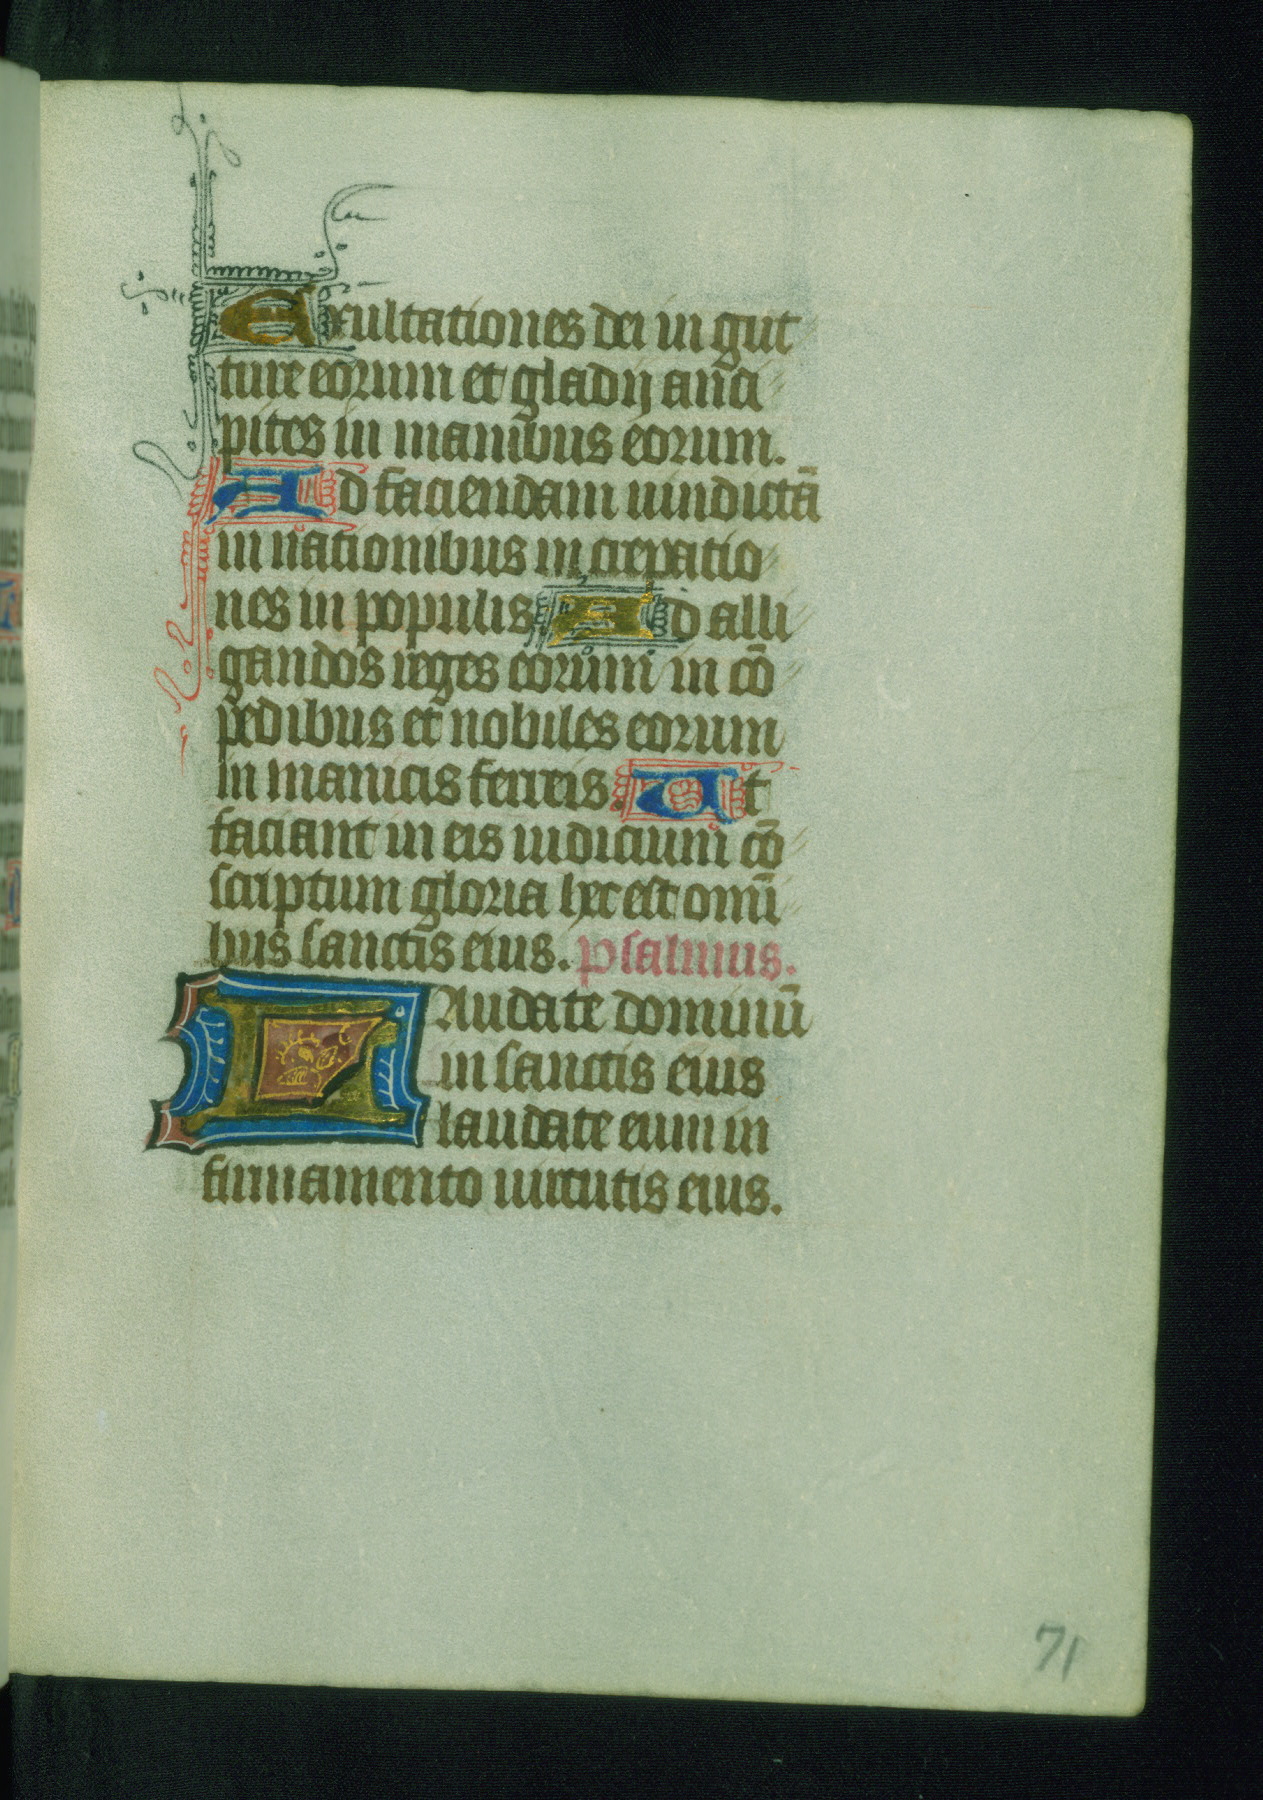 Exultationes dei in gut
ture eorum et gladij anci
pites in manibus eorum.
Ad faciendam uindictā
in nationibus increpatio
nes in populis Ad alli
gandos reges eorum in cō
pedibus et nobiles eorum
in manicis ferreis. Ut
faciant in eis iudicium cō
scriptum gloria hec est omni
bus sanctis eius. psalmus.
Laudate dominū
in sanctis eius
laudate eum in
firmamento uirtutis eius.
71